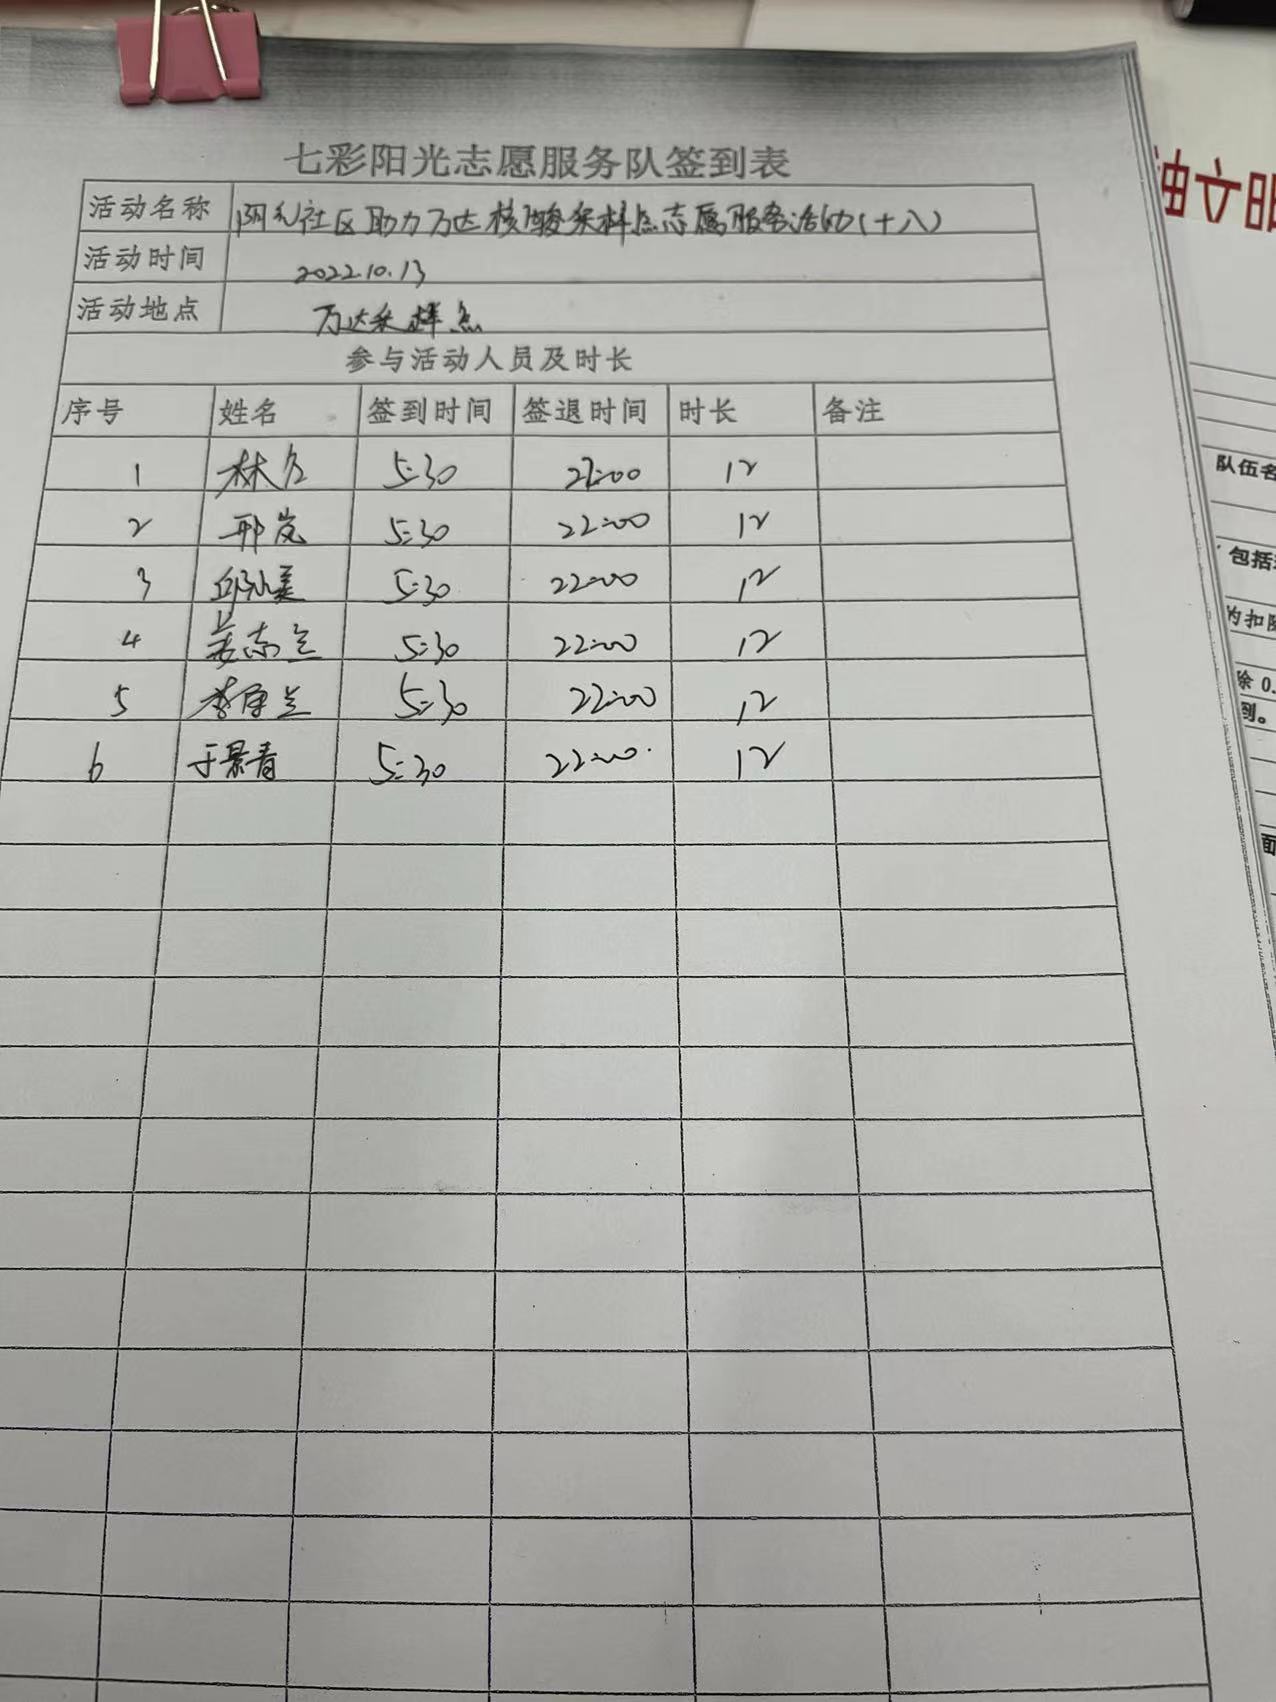 七彩阳光志愿服务队签到表
活动名称 社区助力万达核酸采样点志愿服务活动(十八)
活动时间 2022.10.13
活动地点 万达采样点
参与活动人员及时长
序号 姓名 签到时间 签退时间 时长 备注
1 林 5:30 22:00 12
2 邢岚 5:30 22:00 12
3 邱 5:30 22:00 12
4 姜志兰 5:30 22:00 12
5 李 兰 5:30 22:00 12
6 于景青 5:30 22:00 12
队伍名
包括
的扣
除 0.
到。
面